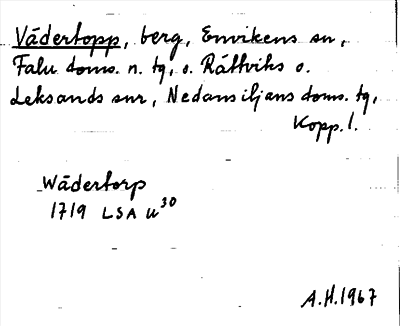 Vädertopp, berg, Envikens sn,
Falu doms. n. tg, o. Rättviks o.
Leksands snr, Nedansiljans doms. tg,
Kopp. l.
Wädertorp
1719 LSA U³⁰
A.H. 1967